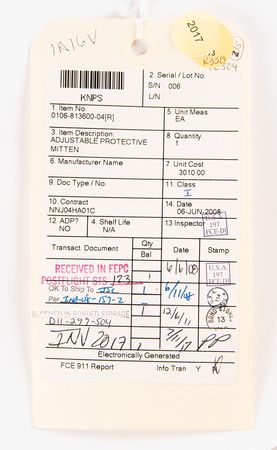 1A16V
2017
KNPS
2. Serial / Lot No.
S/N : 006
L/N :
1. Item No.
0106-813600-04[R]
5. Unit Meas
EA
3. Item Description:
ADJUSTABLE PROTECTIVE
MITTEN
8. Quantity
1
6. Manufacturer Name
7. Unit Cost
3010.00
9. Doc Type / No.
11. Class
I
10. Contract
NNJ04HA01C
14. Date
06-JUN-2008
12. ADP?
NO
4. Shelf Life
N/A
13 Inspector
U.S.A.
197
FCE-DI
Transact. Document
Qty
Bal
Date
Stamp
RECEIVED IN FEPC
POSTFLIGHT STS-123
1
6/6/08
U.S.A.
197
FCE-DI
OK To Ship To JSC
1
6/11/08
RECEIVED IN BONDED STORAGE
D11-297-504
1
12/6/11
BOND STORES
13
INV 2017
1
2/11/17
PP
Electronically Generated
FCE 911 Report
Info Tran
Y
N